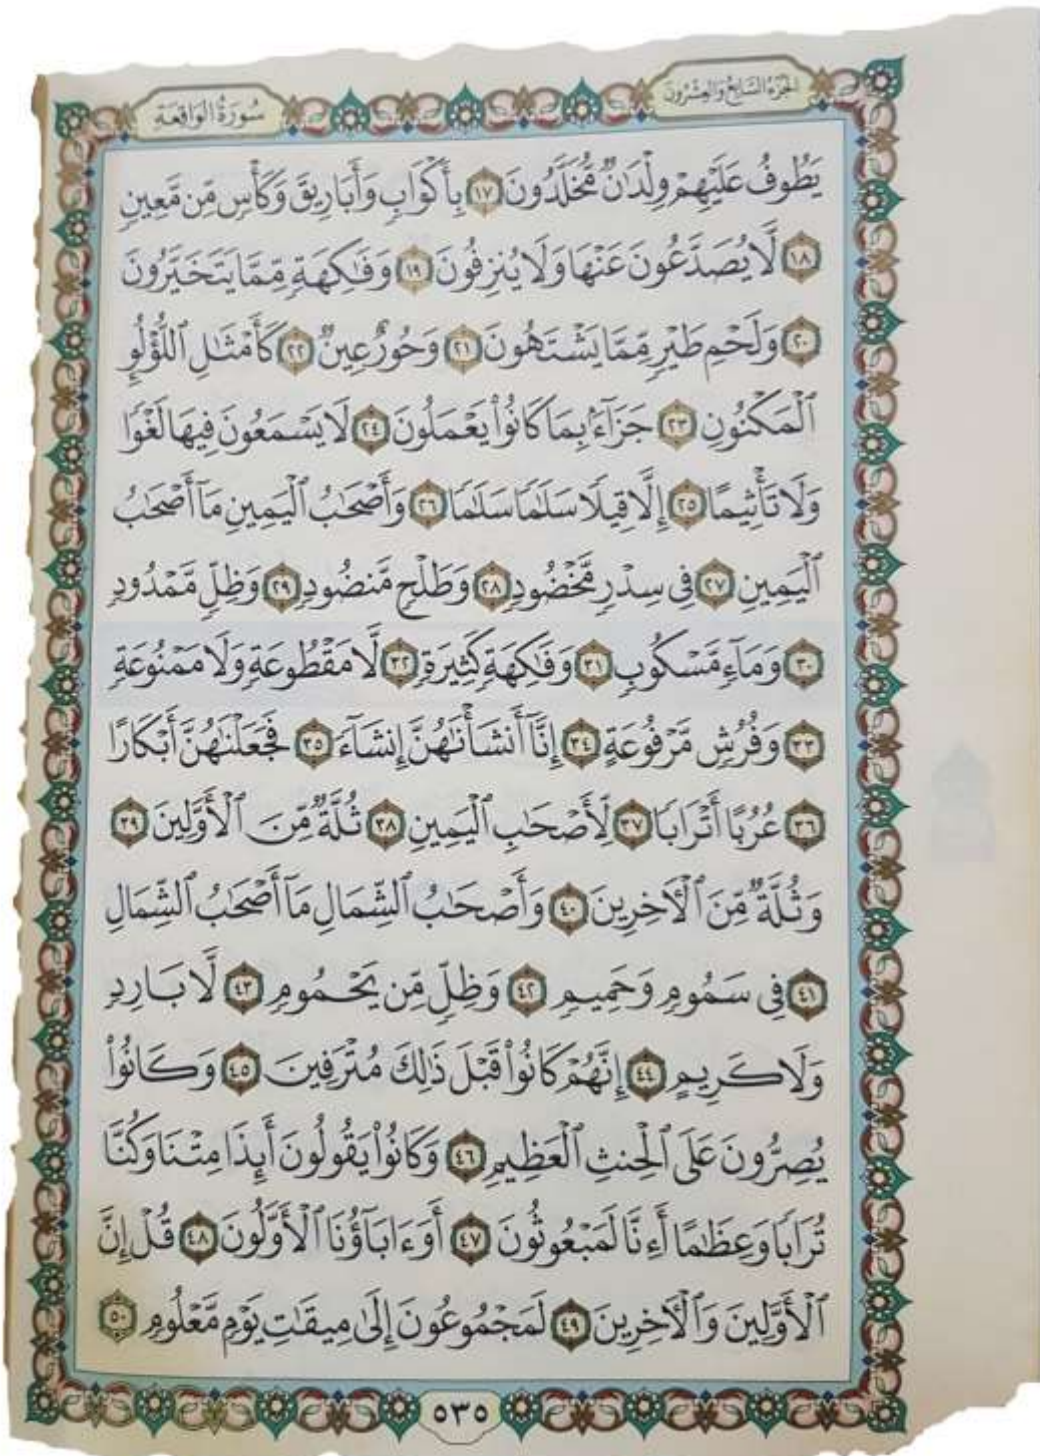 الجزء السابع والعشرون
سورة الواقعة
يَطُوفُ عَلَيْهِمْ وِلْدَٰنٌ مُّخَلَّدُونَ ١٧ بِأَكْوَابٍ وَأَبَارِيقَ وَكَأْسٍ مِّن مَّعِينٍ
١٨ لَّا يُصَدَّعُونَ عَنْهَا وَلَا يُنزِفُونَ ١٩ وَفَٰكِهَةٍ مِّمَّا يَتَخَيَّرُونَ
٢٠ وَلَحْمِ طَيْرٍ مِّمَّا يَشْتَهُونَ ٢١ وَحُورٌ عِينٌ ٢٢ كَأَمْثَٰلِ ٱللُّؤْلُؤِ
ٱلْمَكْنُونِ ٢٣ جَزَآءًۢ بِمَا كَانُوا۟ يَعْمَلُونَ ٢٤ لَا يَسْمَعُونَ فِيهَا لَغْوًا
وَلَا تَأْثِيمًا ٢٥ إِلَّا قِيلًا سَلَٰمًا سَلَٰمًا ٢٦ وَأَصْحَٰبُ ٱلْيَمِينِ مَآ أَصْحَٰبُ
ٱلْيَمِينِ ٢٧ فِى سِدْرٍ مَّخْضُودٍ ٢٨ وَطَلْحٍ مَّنضُودٍ ٢٩ وَظِلٍّ مَّمْدُودٍ
٣٠ وَمَآءٍ مَّسْكُوبٍ ٣١ وَفَٰكِهَةٍ كَثِيرَةٍ ٣٢ لَّا مَقْطُوعَةٍ وَلَا مَمْنُوعَةٍ
٣٣ وَفُرُشٍ مَّرْفُوعَةٍ ٣٤ إِنَّآ أَنشَأْنَٰهُنَّ إِنشَآءً ٣٥ فَجَعَلْنَٰهُنَّ أَبْكَارًا
٣٦ عُرُبًا أَتْرَابًا ٣٧ لِّأَصْحَٰبِ ٱلْيَمِينِ ٣٨ ثُلَّةٌ مِّنَ ٱلْأَوَّلِينَ ٣٩
وَثُلَّةٌ مِّنَ ٱلْـَٔاخِرِينَ ٤٠ وَأَصْحَٰبُ ٱلشِّمَالِ مَآ أَصْحَٰبُ ٱلشِّمَالِ
٤١ فِى سَمُومٍ وَحَمِيمٍ ٤٢ وَظِلٍّ مِّن يَحْمُومٍ ٤٣ لَّا بَارِدٍ
وَلَا كَرِيمٍ ٤٤ إِنَّهُمْ كَانُوا۟ قَبْلَ ذَٰلِكَ مُتْرَفِينَ ٤٥ وَكَانُوا۟
يُصِرُّونَ عَلَى ٱلْحِنثِ ٱلْعَظِيمِ ٤٦ وَكَانُوا۟ يَقُولُونَ أَئِذَا مِتْنَا وَكُنَّا
تُرَابًا وَعِظَٰمًا أَءِنَّا لَمَبْعُوثُونَ ٤٧ أَوَءَابَآؤُنَا ٱلْأَوَّلُونَ ٤٨ قُلْ إِنَّ
ٱلْأَوَّلِينَ وَٱلْـَٔاخِرِينَ ٤٩ لَمَجْمُوعُونَ إِلَىٰ مِيقَٰتِ يَوْمٍ مَّعْلُومٍ ٥٠
٥٣٥